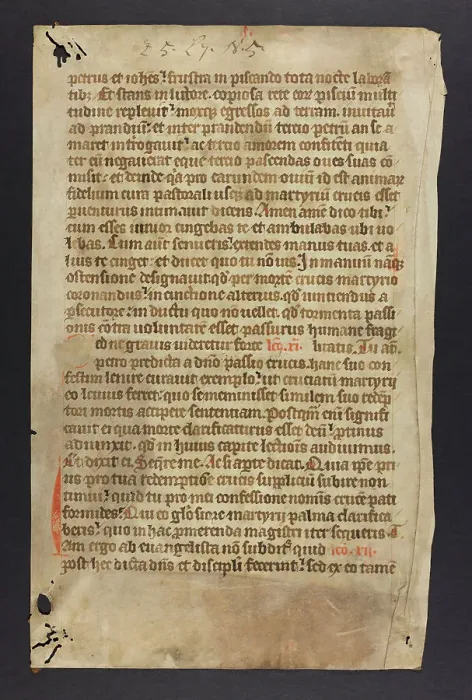 25. Ly. N. 5.
petrus et iohes frustra in piscando tota nocte labora
tib; Et stans in litore copiosa rete eor pisciū multi
tudine repleuit moxq; egressos ad terram inuitau
ad prandiū et inter prandendū tercio petrū an se a
maret introgauit ac tercio amorem confitēti quia
ter eū negauerat eque tercio pascendas oues suas cō
misit et deinde qa pro earundem ouiū id est animar
fidelium cura pastorali usq; ad martyriū crucis esset
puenturus intimauit dicens Amen amē dico tibi
cum esses iunior cingebas te et ambulabas ubi uo
lebas. Cum aūt senueris extendes manus tuas et a
lius te cinget et ducet quo tu nō uis. In manuū nāq;
ostensione designauit qd per mortē crucis martyrio
coronandus in cinctione alterius qd uinciendus a
psecutore in ductu quo nō uellet qd tormenta passi
onis cōtra uoluntatē esset passurus humane fragi
ed ne grauis uideretur forte lcō. xi. litatis. Tu aū.
petro predicta a dnō passio crucis hanc suo con
festim lenire curauit exemplo ut cruciatū martyrii
eo leuius ferret quo se meminisset similem suo redēp
tori mortis accipere sententiam. Postqm enī signifi
cauit ei qua morte clarificaturus esset deū ptinus
adiunxit qd in huius capite lectiois audiuimus.
Et dixit ei Seqre me. Ac si apte dicat. Quia ipse pri
us pro tua redemptiōe crucis suppliciū subire non
timui quid tu pro mei confessione nominis crucē pati
formides Qui eo gl'osiore martyrii palma clarifica
beris quo in hac pmerenda magistri iter sequeris. T
Am ergo ab euangelista nō subditr quid lcō. xii.
post hec dicta dns et discipli fecerint sed ex eo tamē